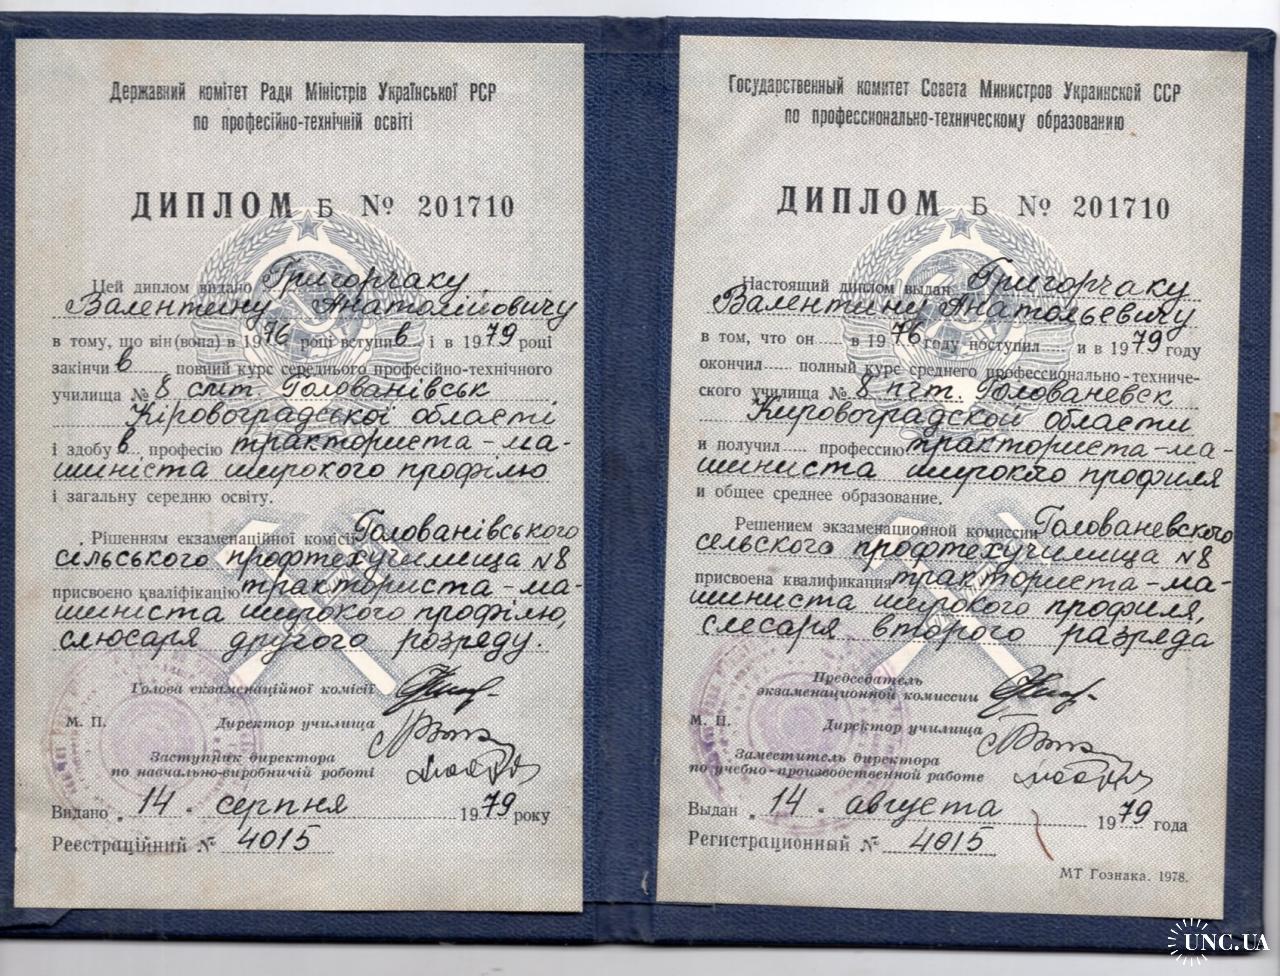 Державний комітет Ради Міністрів Української РСР
по професійно-технічній освіті
ДИПЛОМ Б № 201710
Цей диплом видано Григорчаку
Валентину Анатолійовичу
в тому, що він(вона) в 1976 році вступив і в 1979 році
закінчив повний курс середнього професійно-технічного
училища № 8 смт. Голованівськ
Кіровоградської області
і здобув професію тракториста-ма-
шиніста широкого профілю
і загальну середню освіту.
Рішенням екзаменаційної комісії Голованівського
сільського профтехучилища N8
присвоєно кваліфікацію тракториста-ма-
шиніста широкого профілю,
слюсаря другого розряду.
Голова екзаменаційної комісії
М. П. Директор училища
Заступник директора
по навчально-виробничій роботі
Видано „14" серпня 1979 року
Реєстраційний № 4015
Государственный комитет Совета Министров Украинской ССР
по профессионально-техническому образованию
ДИПЛОМ Б № 201710
Настоящий диплом выдан Григорчаку
Валентину Анатольевичу
в том, что он в 1976 году поступил и в 1979 году
окончил полный курс среднего профессионально-техниче-
ского училища № 8 пгт. Голованевск
Кировоградской области
и получил профессию тракториста-ма-
шиниста широкого профиля
и общее среднее образование.
Решением экзаменационной комиссии Голованевского
сельского профтехучилища N8
присвоена квалификация тракториста-ма-
шиниста широкого профиля,
слесаря второго разряда
Председатель
экзаменационной комиссии
М. П. Директор училища
Заместитель директора
по учебно-производственной работе
Выдан „14" августа 1979 года
Регистрационный № 4015
МТ Гознака. 1978.
UNC.UA